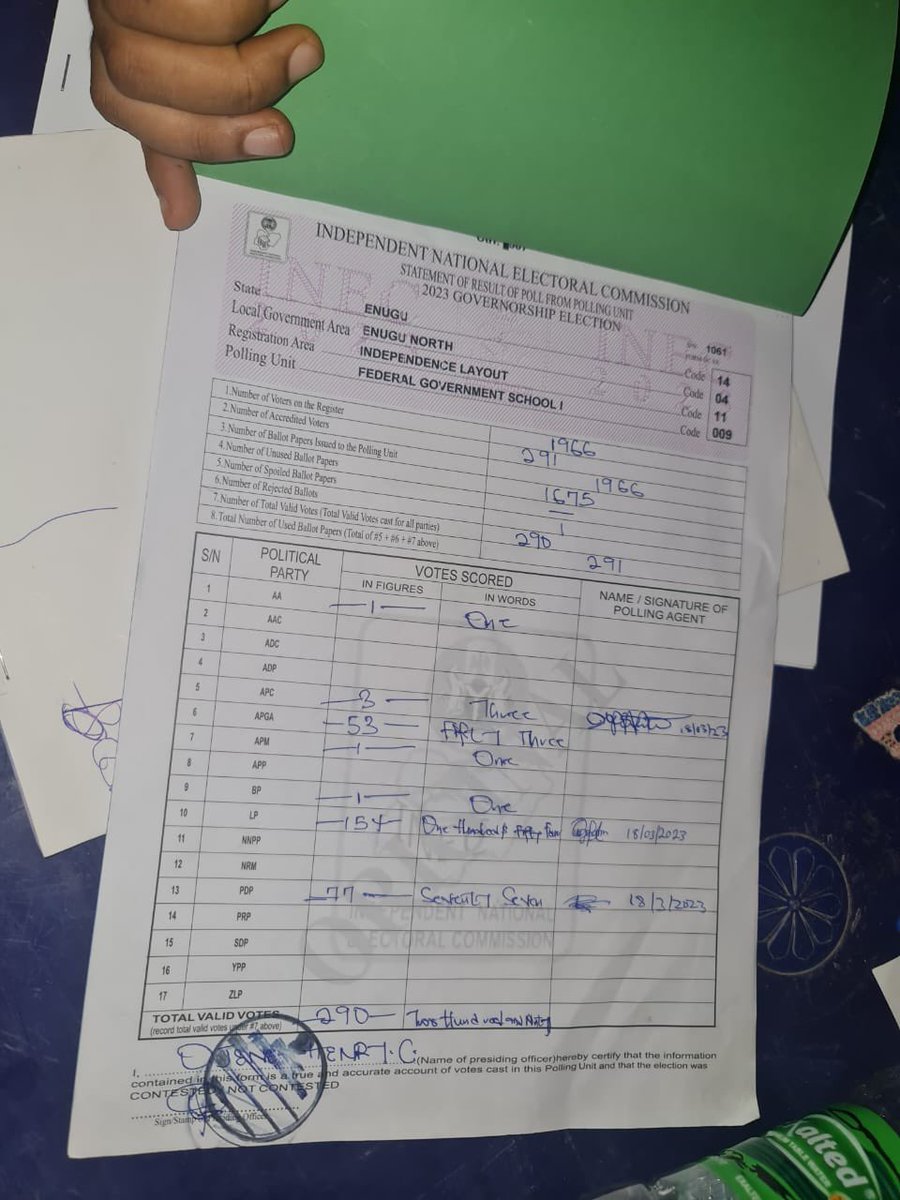 INDEPENDENT NATIONAL ELECTORAL COMMISSION
STATEMENT OF RESULT OF POLL FROM POLLING UNIT
2023 GOVERNORSHIP ELECTION
1061
State ENUGU Code 14
Local Government Area ENUGU NORTH Code 04
Registration Area INDEPENDENCE LAYOUT Code 11
Polling Unit FEDERAL GOVERNMENT SCHOOL I Code 009
1.Number of Voters on the Register 1966
2.Number of Accredited Voters 291
3.Number of Ballot Papers Issued to the Polling Unit 1966
4.Number of Unused Ballot Papers 1675
5.Number of Spoiled Ballot Papers —
6.Number of Rejected Ballots 1
7.Number of Total Valid Votes (Total Valid Votes cast for all parties) 290
8.Total Number of Used Ballot Papers (Total of #5 + #6 + #7 above) 291
S/N POLITICAL PARTY VOTES SCORED NAME / SIGNATURE OF POLLING AGENT
IN FIGURES IN WORDS
1 AA —1— One
2 AAC
3 ADC
4 ADP
5 APC —3— Three
6 APGA —53— Fifty Three 18/03/23
7 APM —1— One
8 APP
9 BP —1— One
10 LP —154— One Hundred & Fifty Four 18/03/2023
11 NNPP
12 NRM
13 PDP —77— Seventy Seven 18/3/2023
14 PRP
15 SDP
16 YPP
17 ZLP
TOTAL VALID VOTES —290— Two Hundred and Ninty
(record total valid votes under #7 above)
I, HENRY . C. (Name of presiding officer)hereby certify that the information
contained in this form is a true and accurate account of votes cast in this Polling Unit and that the election was
CONTESTED / NOT CONTESTED
Sign/Stamp Presiding Officer